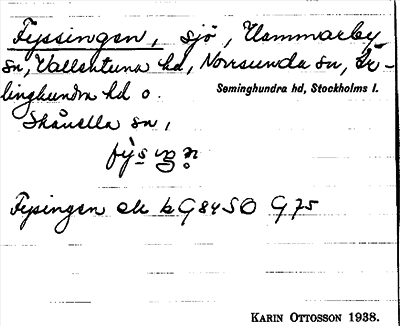 Fyssingen, sjö, Hammarby
sn, Vallentuna hd, Norrsunda sn, Är-
linghundra hd o.
Seminghundra hd, Stockholms l.
Skånella sn,
Fysingen ek bG84SO G75
KARIN OTTOSSON 1938.